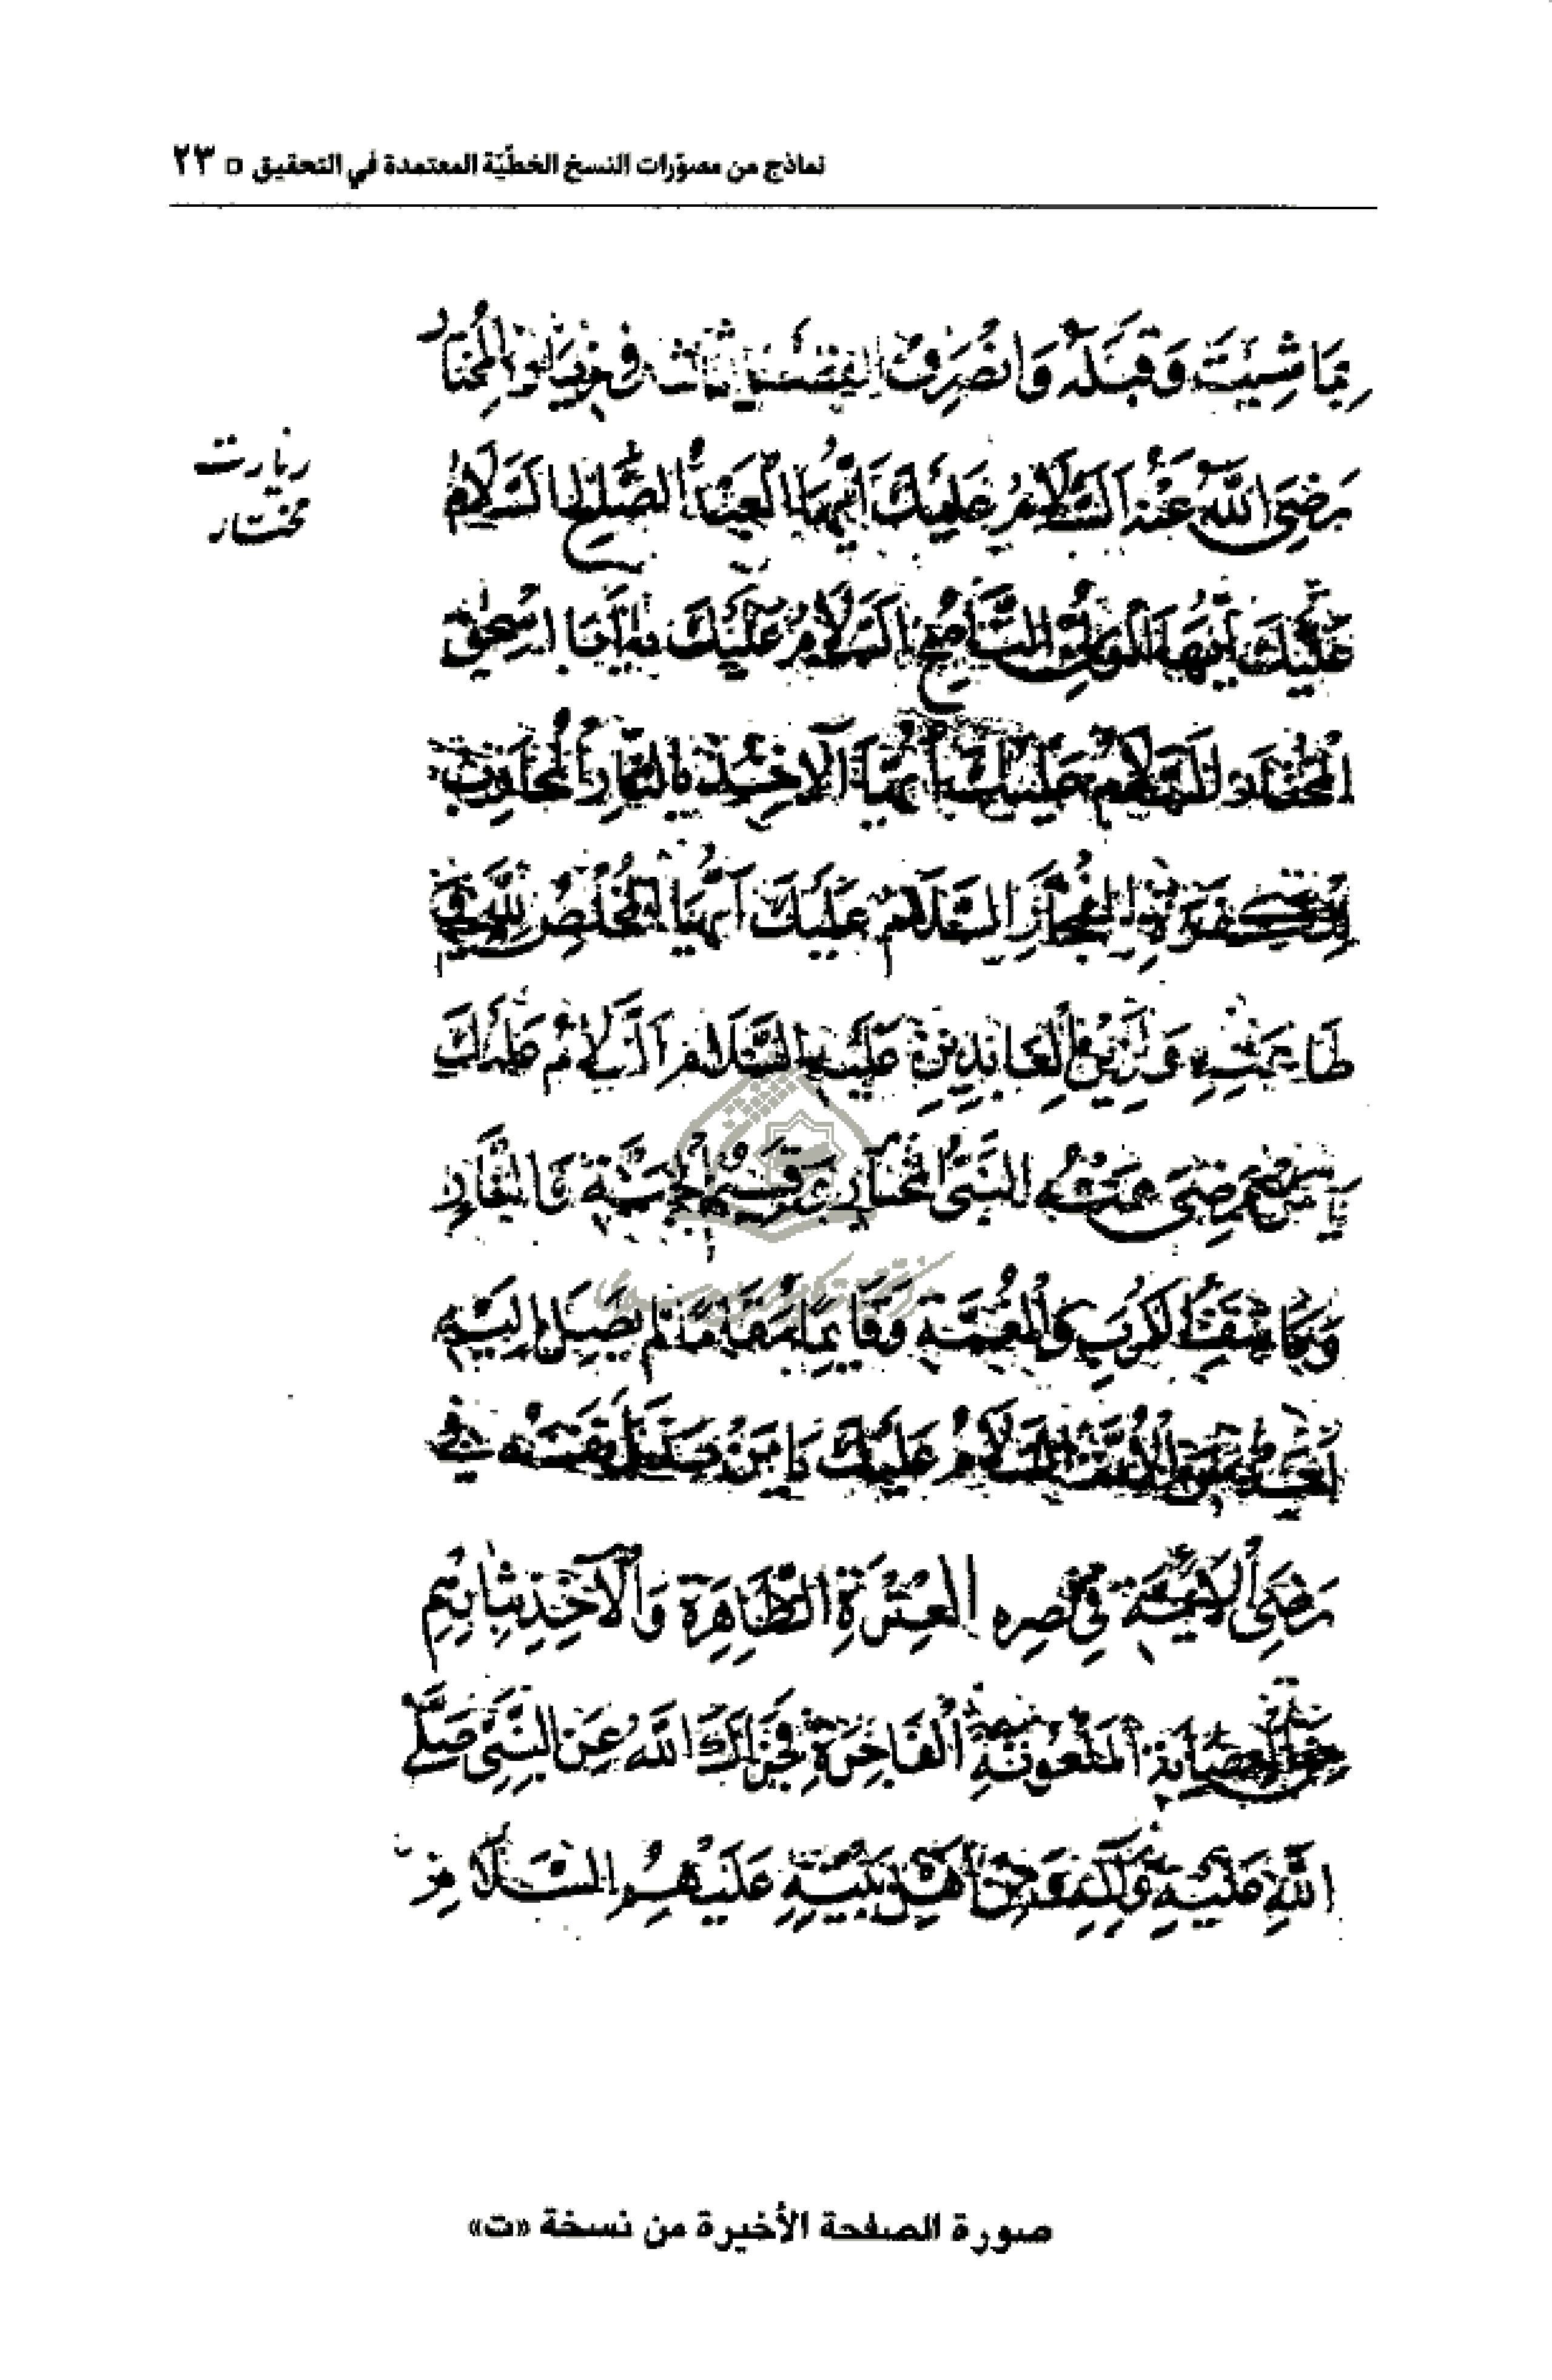 نماذج من مصوّرات النسخ الخطّيّة المعتمدة في التحقيق □ ٢٣
بِمَا شِئْتَ وَقَبِّلْهُ وَانْصَرِفْ الفصل الثالث في زيارة المُختار
زیارت
مختار
رَضِيَ اللهُ عَنْهُ السَّلَامُ عَلَيْكَ اَيُّهَا الْعَبْدُ الصَّالِحُ السَّلَامُ
عَلَيْكَ اَيُّهَا الْوَلِيُّ النَّاصِحُ السَّلَامُ عَلَيْكَ يا اَبَا اِسْحٰقَ
الْمُخْتَار السَّلَامُ عَلَيْكَ اَيُّهَا الْآخِذُ بِالثَّارِ الْمُحَارِبُ
لِلْكَفَرَةِ الْفُجَّارِ السَّلَامُ عَلَيْكَ اَيُّهَا الْمُخْلِصُ لِلّٰهِ فِي
طَاعَتِهِ وَلِزَيْنِ الْعَابِدِينَ عَلَيْهِ السَّلَامُ اَلسَّلَامُ عَلَيْكَ
يَا مَنْ رَضِيَ عَنْهُ النَّبِيُّ الْمُخْتَارُ وَقَسِيمُ الْجَنَّةِ وَالنَّارِ
وَكَاشِفُ الْكَرْبِ وَالْغُمَّةِ وَقَائِمًا مَقَامًا لَمْ يَصِلْ اِلَيْهِ
اَحَدٌ مِنَ الْاُمَّةِ السَّلَامُ عَلَيْكَ يَا مَنْ بَذَلَ نَفْسَهُ فِي
رِضَى الْاَئِمَّةِ فِي نصره الْعِتْرَةِ الطَّاهِرَةِ وَالْآخِذِ بِثَارِهِمْ
مِنَ الْعِصَابَةِ الْمَلْعُونَةِ الْفَاجِرَةِ فَجَزَاكَ اللهُ عَنِ النَّبِيِّ صَلَّى
اللهُ عَلَيْهِ وَآلِهِ وَعَنْ اَهْلِ بَيْتِهِ عَلَيْهِمُ السَّلَامُ
صورة الصفحة الأخيرة من نسخة «ت»